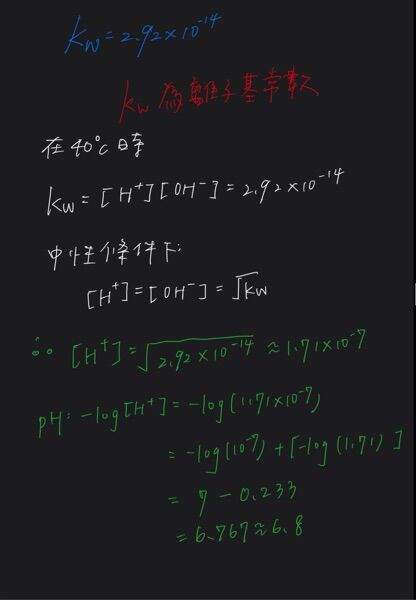 Kw = 2.92×10⁻¹⁴
Kw 為離子基常數
在40°C時
Kw = [H⁺][OH⁻] = 2.92×10⁻¹⁴
中性條件下:
[H⁺] = [OH⁻] = √Kw
∴ [H⁺] = √2.92×10⁻¹⁴ ≈ 1.71×10⁻⁷
pH: -log[H⁺] = -log(1.71×10⁻⁷)
= -log(10⁻⁷) + [-log(1.71)]
= 7 - 0.233
= 6.767 ≈ 6.8